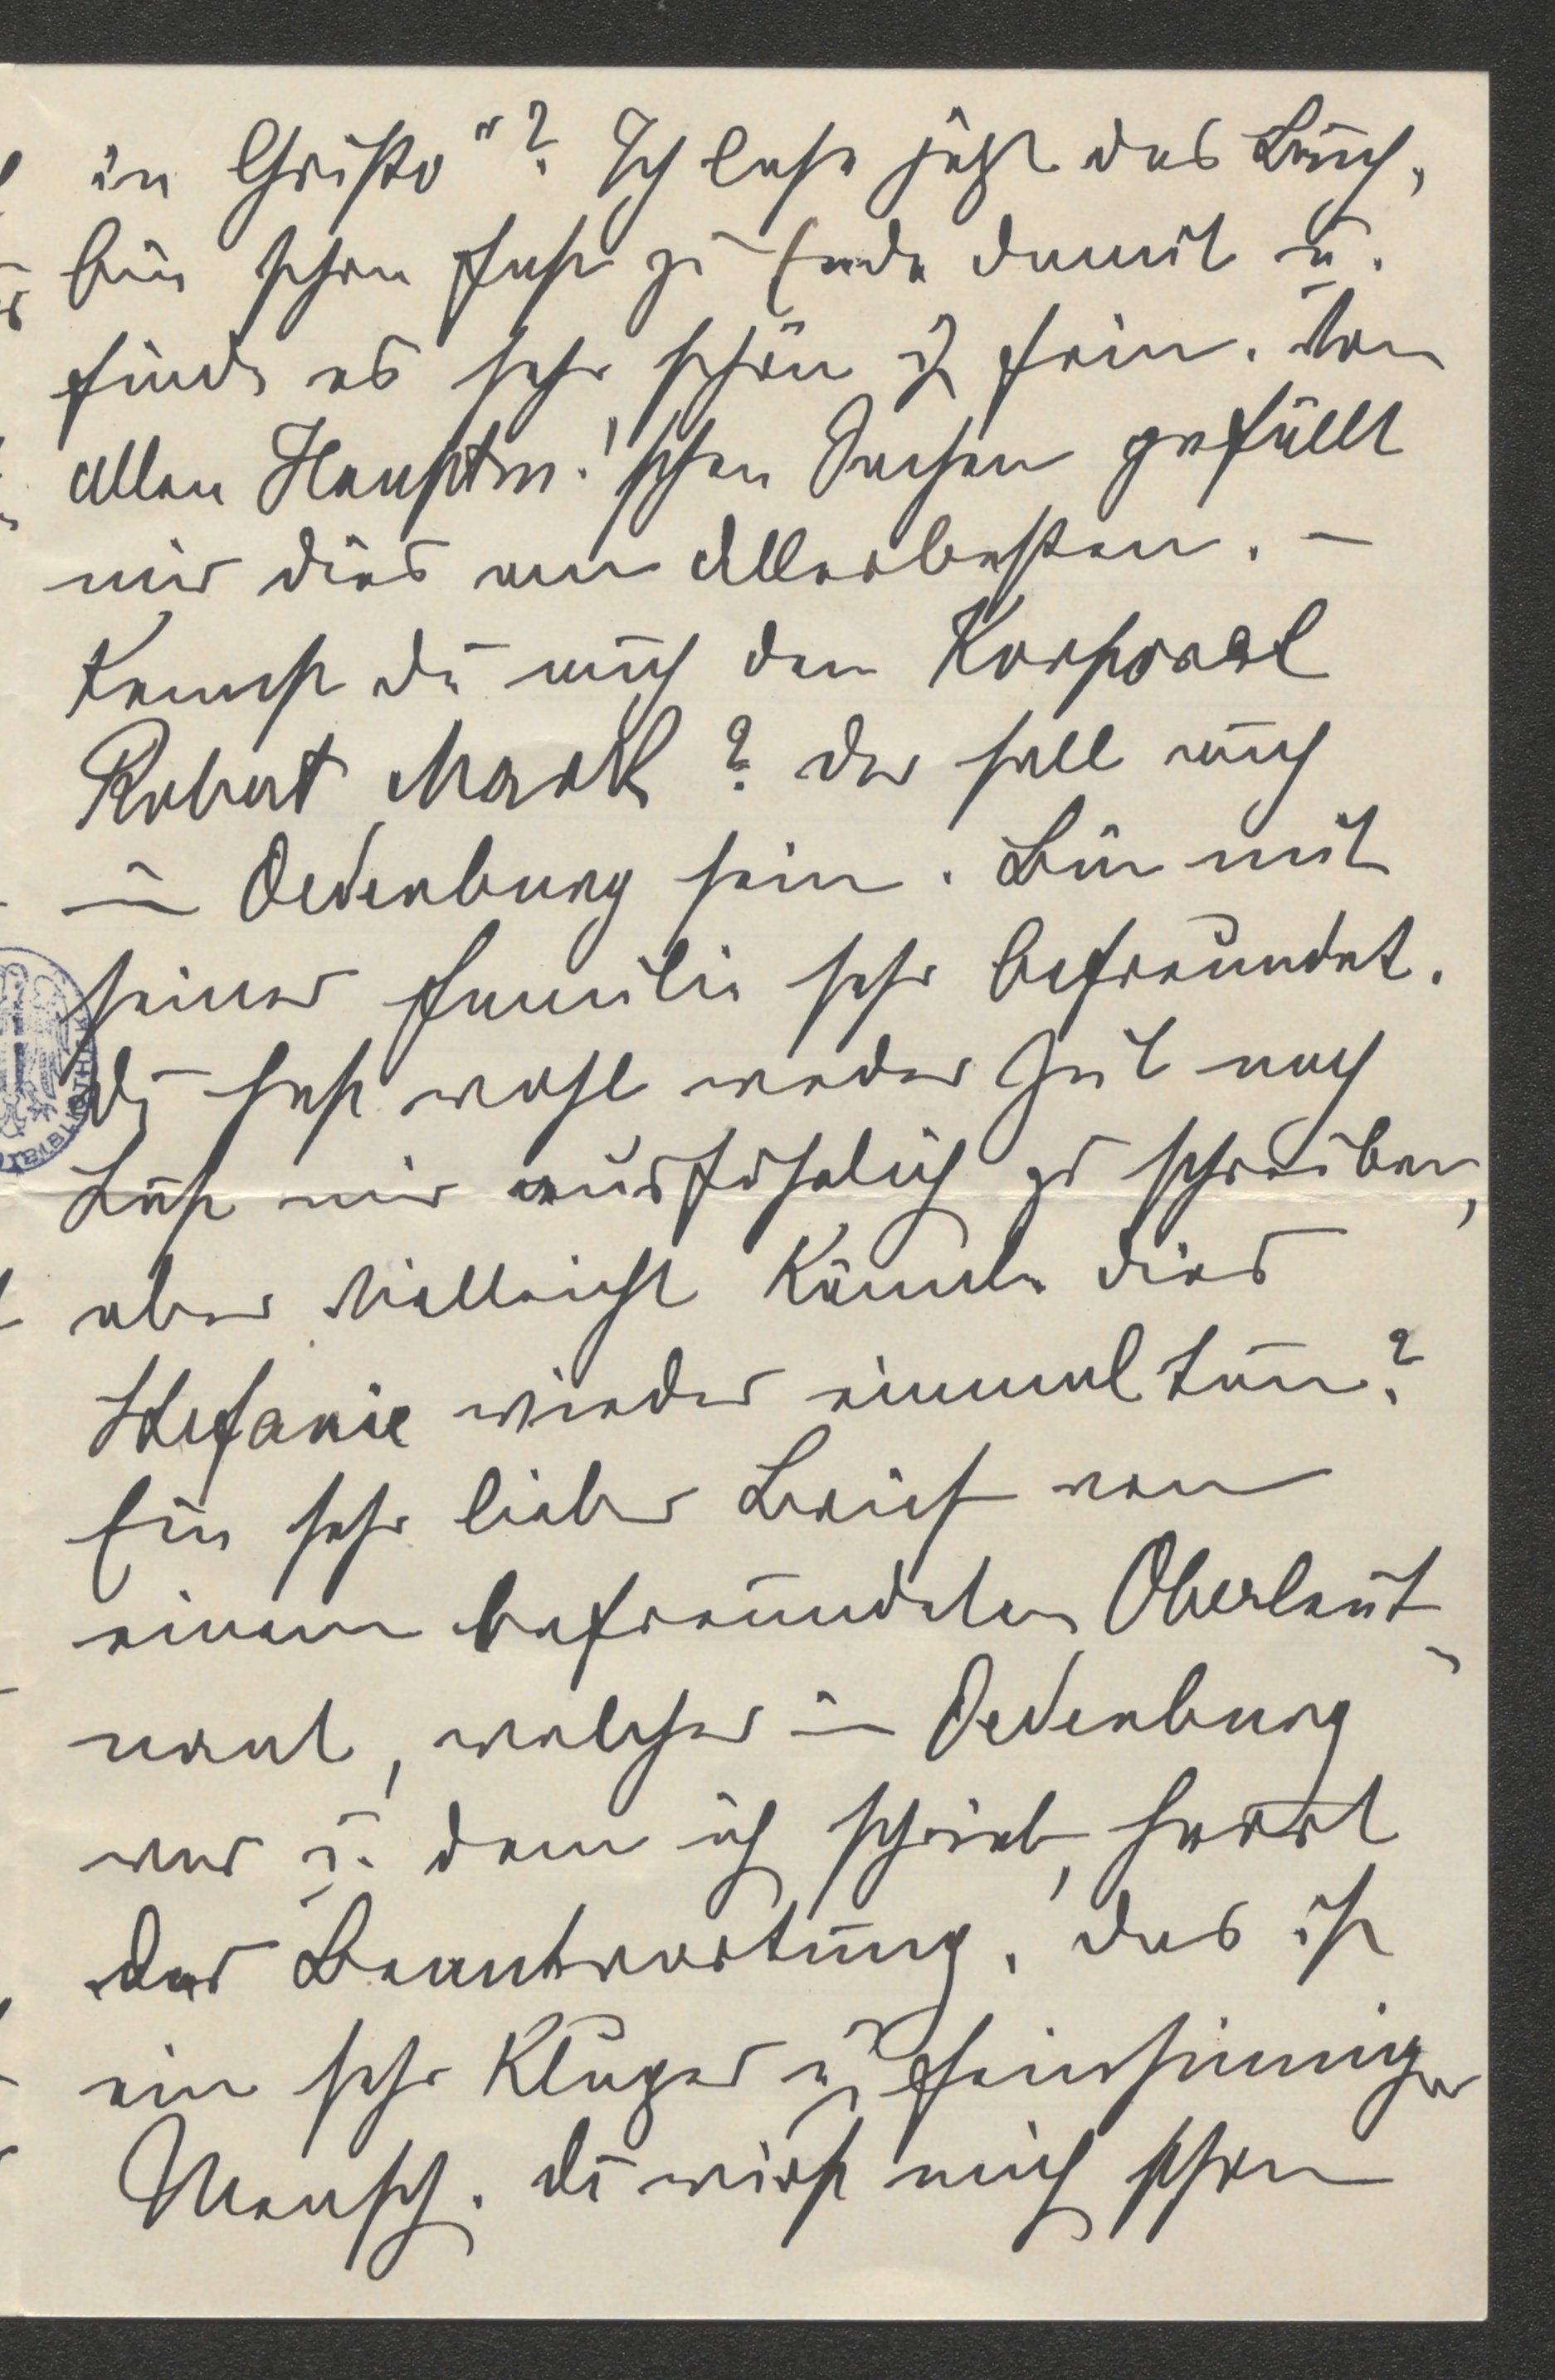 in Christo"? Ich lese jetzt das Buch,
bin schon fast zu Ende damit u.
finde es sehr schön u. fein. Von
allen Hauptm.'schen Sachen gefällt
mir dies am Allerbesten. –
Kennst du auch den Korporal
Robert Mark? Der soll auch
in Oedenburg sein. Bin mit
seiner Familie sehr befreundet.
Du hast wohl weder Zeit noch
Lust mir ausführlich zu schreiben,
aber vielleicht könnte dies
Stefanie wieder einmal tun?
Ein sehr lieber Brief von
einem befreundeten Oberleut-
nant, welcher in Oedenburg
war u. dem ich schrieb, harrt
der Beantwortung. Das ist
ein sehr kluger u. feinsinniger
Mensch. Du wirst mich schon